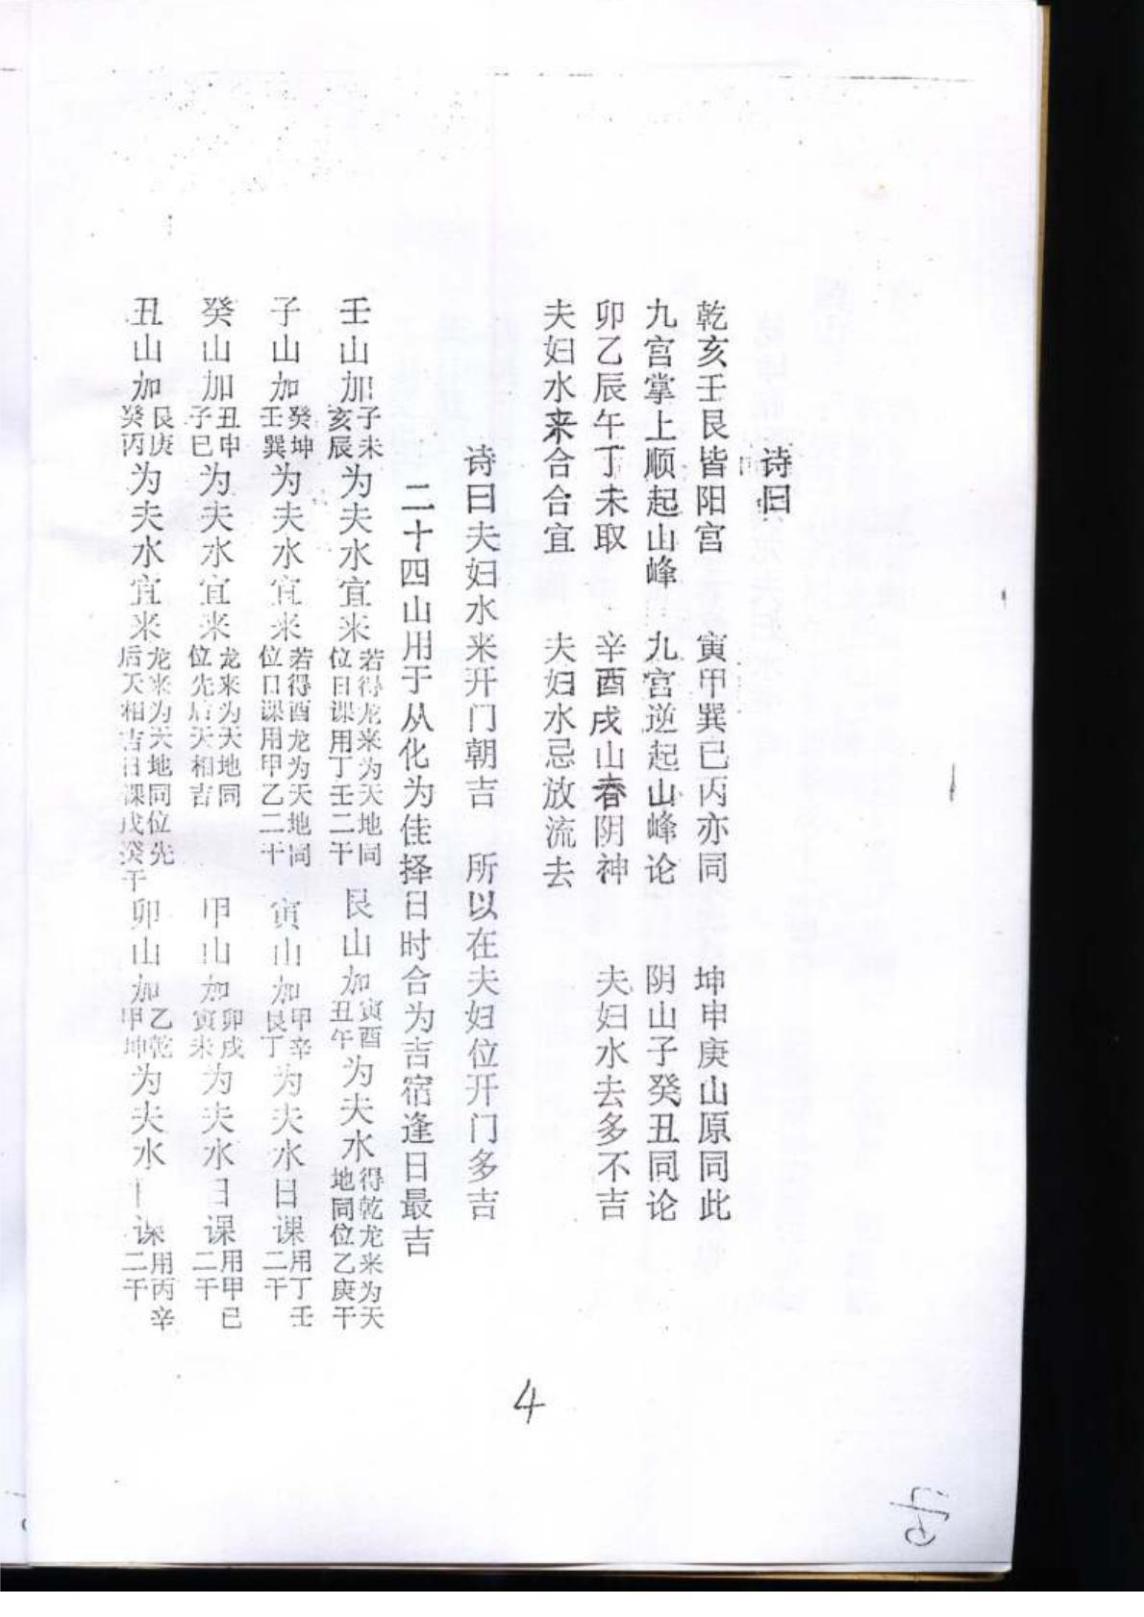 诗曰
乾亥壬艮皆阳宫 寅甲巽巳丙亦同 坤申庚山原同此
九宫掌上顺起山峰 九宫逆起山峰论 阴山子癸丑同论
卯乙辰午丁未取 辛酉戌山春阴神 夫妇水去多不吉
夫妇水来合合宜 夫妇水忌放流去
诗曰夫妇水来开门朝吉 所以在夫妇位开门多吉
二十四山用于从化为佳择日时合为吉宿逢日最吉
壬山加子未亥辰为夫水宜来若得龙来为天地同位日课用丁壬二干 艮山加寅酉丑午为夫水得乾龙来为天地同位乙庚干
子山加癸坤壬巽为夫水宜来若得酉龙为天地同位日课用甲乙二干 寅山加甲辛艮丁为夫水日课用丁壬二干
癸山加丑申子巳为夫水宜来龙来为天地同位先后天相吉 甲山加卯戌寅未为夫水日课用甲己二干
丑山加艮庚癸丙为夫水宜来龙来为天地同位先后天相吉日课戊癸干 卯山加乙乾甲坤为夫水日课用丙辛二干
4